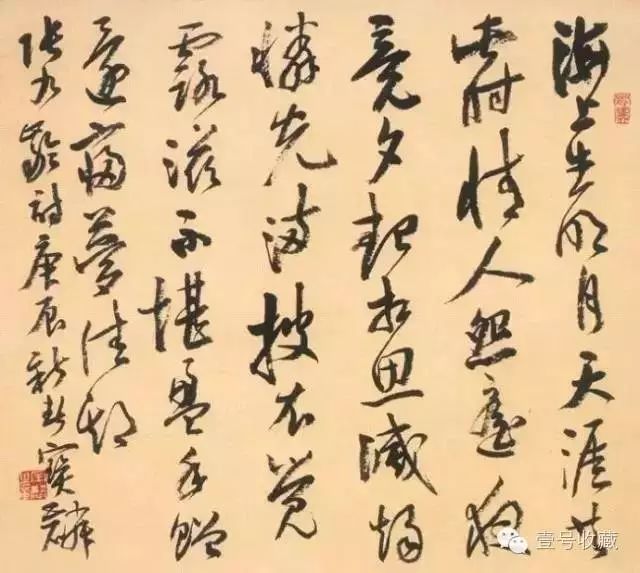 海上生明月天涯共
此时情人怨遥夜
竟夕起相思滅燭
憐光滿披衣覺
露滋不堪盈手贈
還寢夢佳期
張九齡詩庚辰新春寶麟
壹号收藏